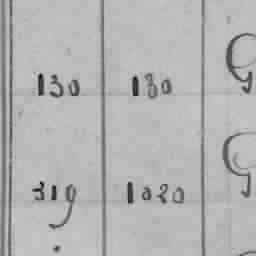 130 180
319 1020